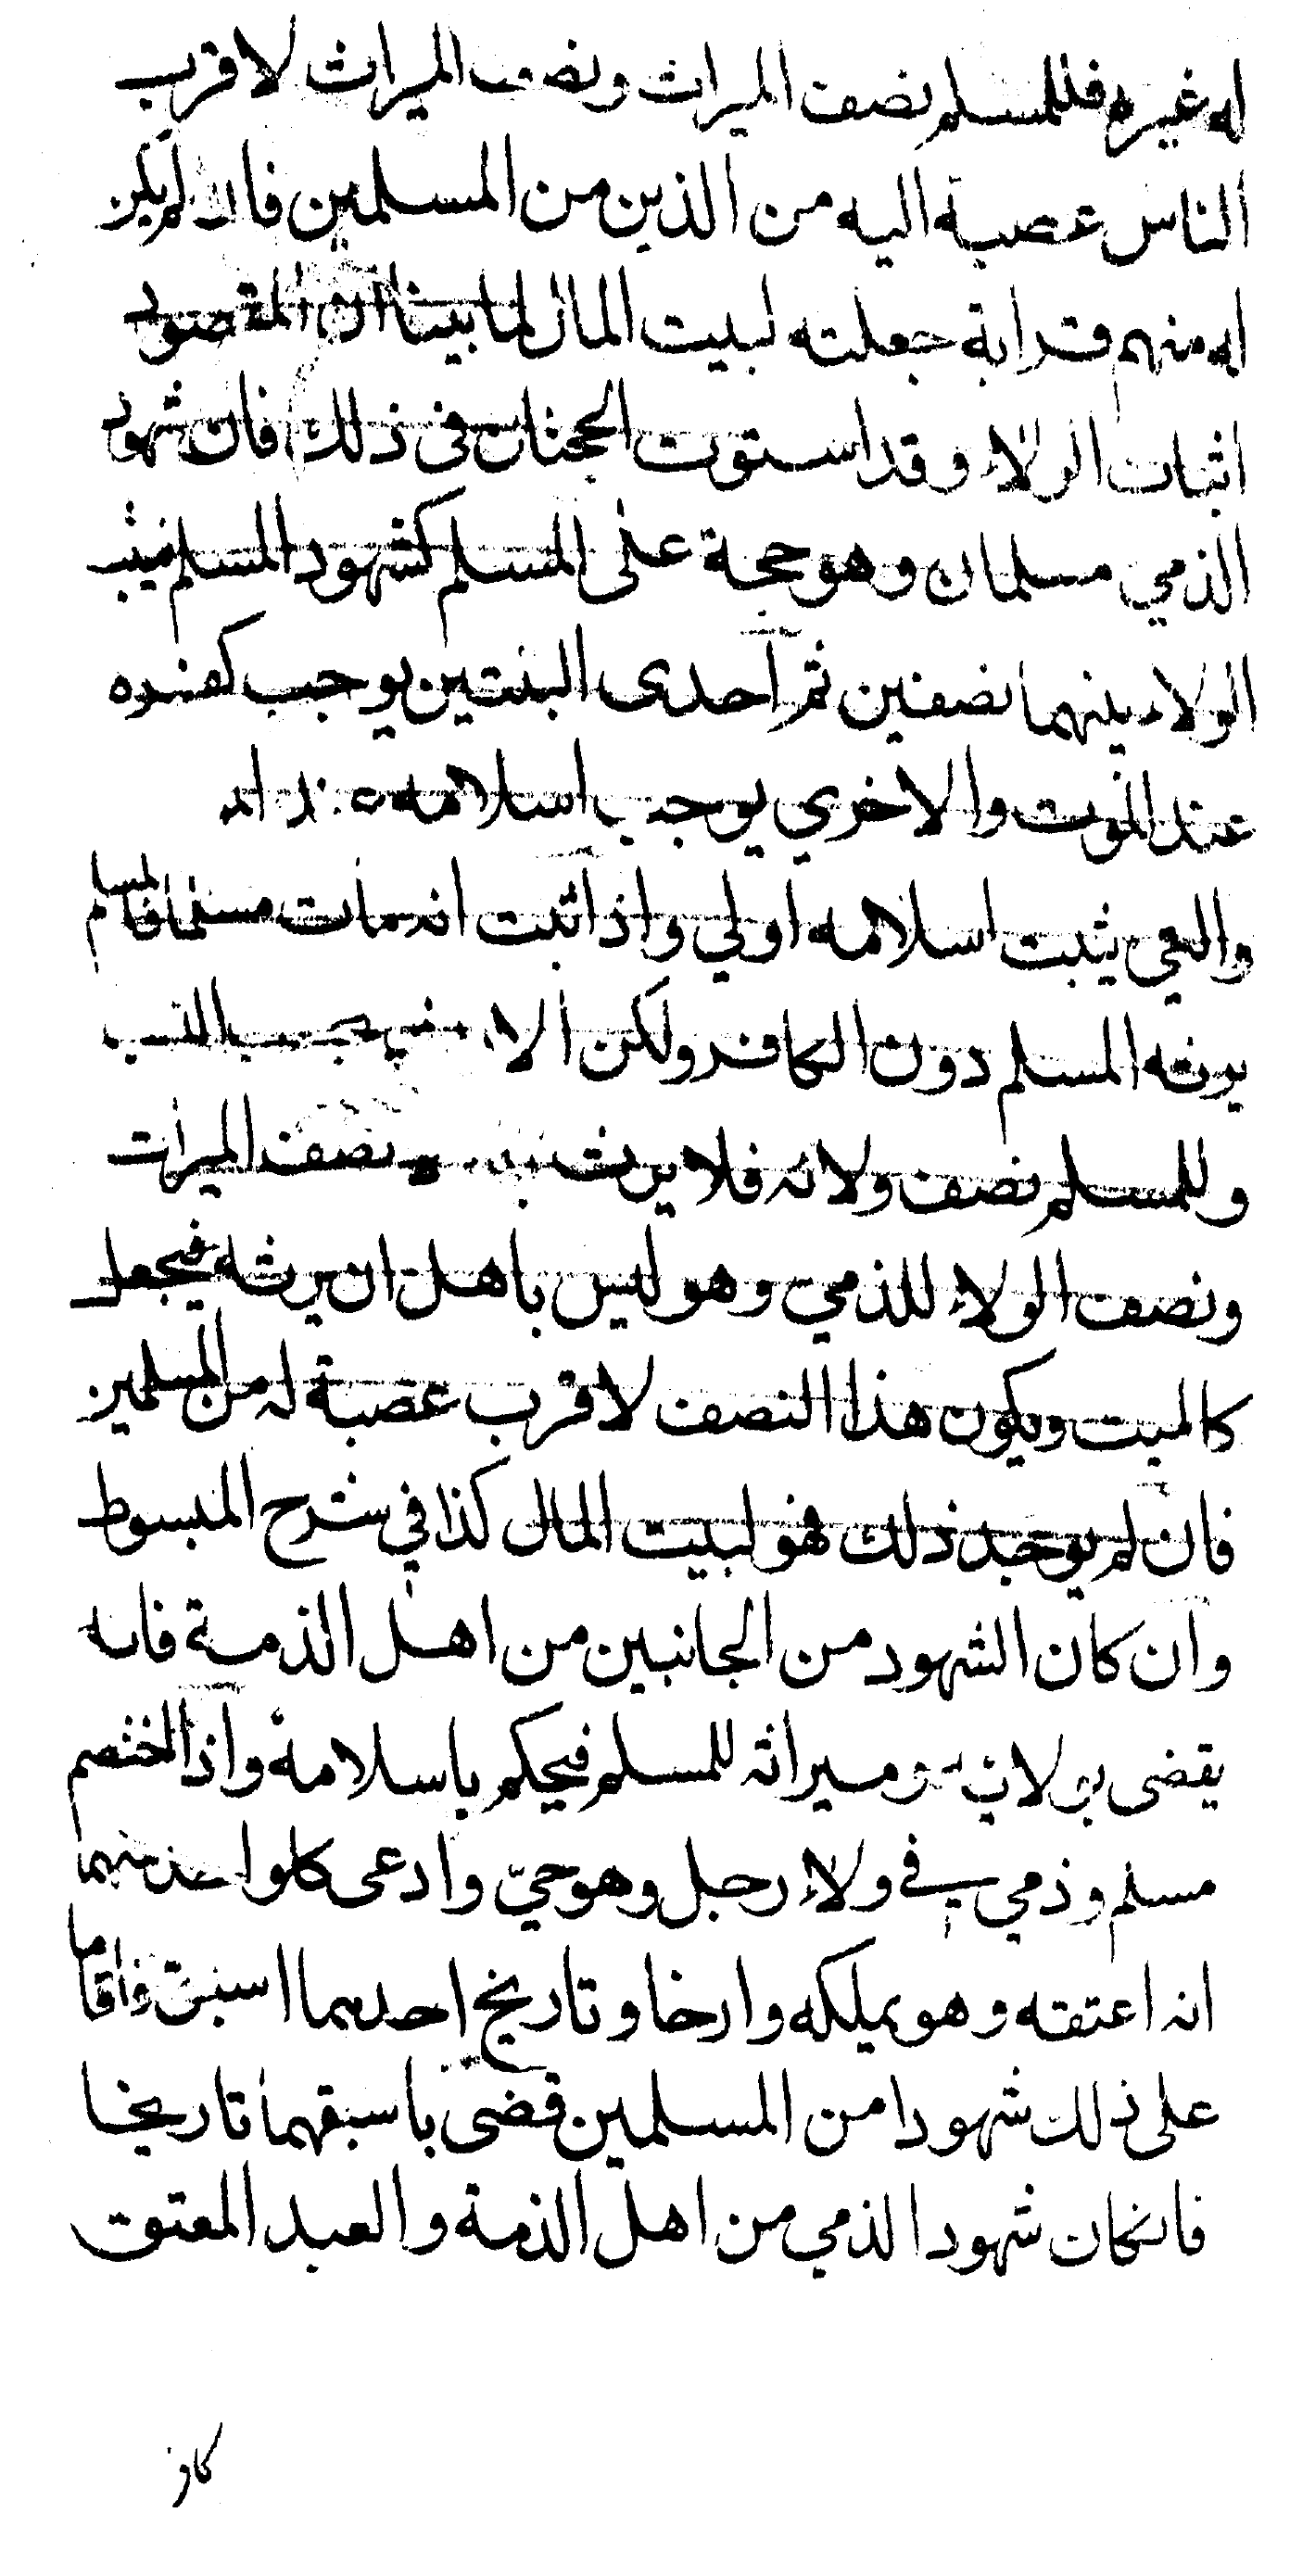 له غيره فللمسلم نصف الميراث ونصف الميراث لاقرب
الناس عصبة اليه من الذين من المسلمين فان لم يكن
له منهم قرابة جعلته لبيت المال لما بينا ان المقصود
اثبات الولاء وقد استوت الحجتان في ذلك فان شهود
الذمي مسلمان وهو حجة على المسلم كشهود المسلم فيثبت
الولاء بينهما نصفين ثم احدى البنتين يوجب كفره
عند الموت والاخري يوجب اسلامه
والتي يثبت اسلامه اولي واذا ثبت انه مات مسلما فالمسلم
يرثه المسلم دون الكافر ولكن الا
وللمسلم نصف ولائه فلا يرث به نصف الميراث
ونصف الولاء للذمي وهو ليس باهل ان يرثه فيجعل
كالميت ويكون هذا النصف لاقرب عصبة له من المسلمين
فان لم يوجد ذلك فهو لبيت المال كذا في شرح المبسوط
وان كان الشهود من الجانبين من اهل الذمة فانه
يقضى بولائه وميراثه للمسلم فيحكم باسلامه واذا اختصم
مسلم وذمي في ولاء رجل وهو حي وادعى كلواحد منهما
انه اعتقه وهو يملكه وارخا وتاريخ احدهما اسبق واقاما
على ذلك شهودا من المسلمين قضى باسبقهما تاريخا
فانكان شهود الذمي من اهل الذمة والعبد المعتوق
كافر